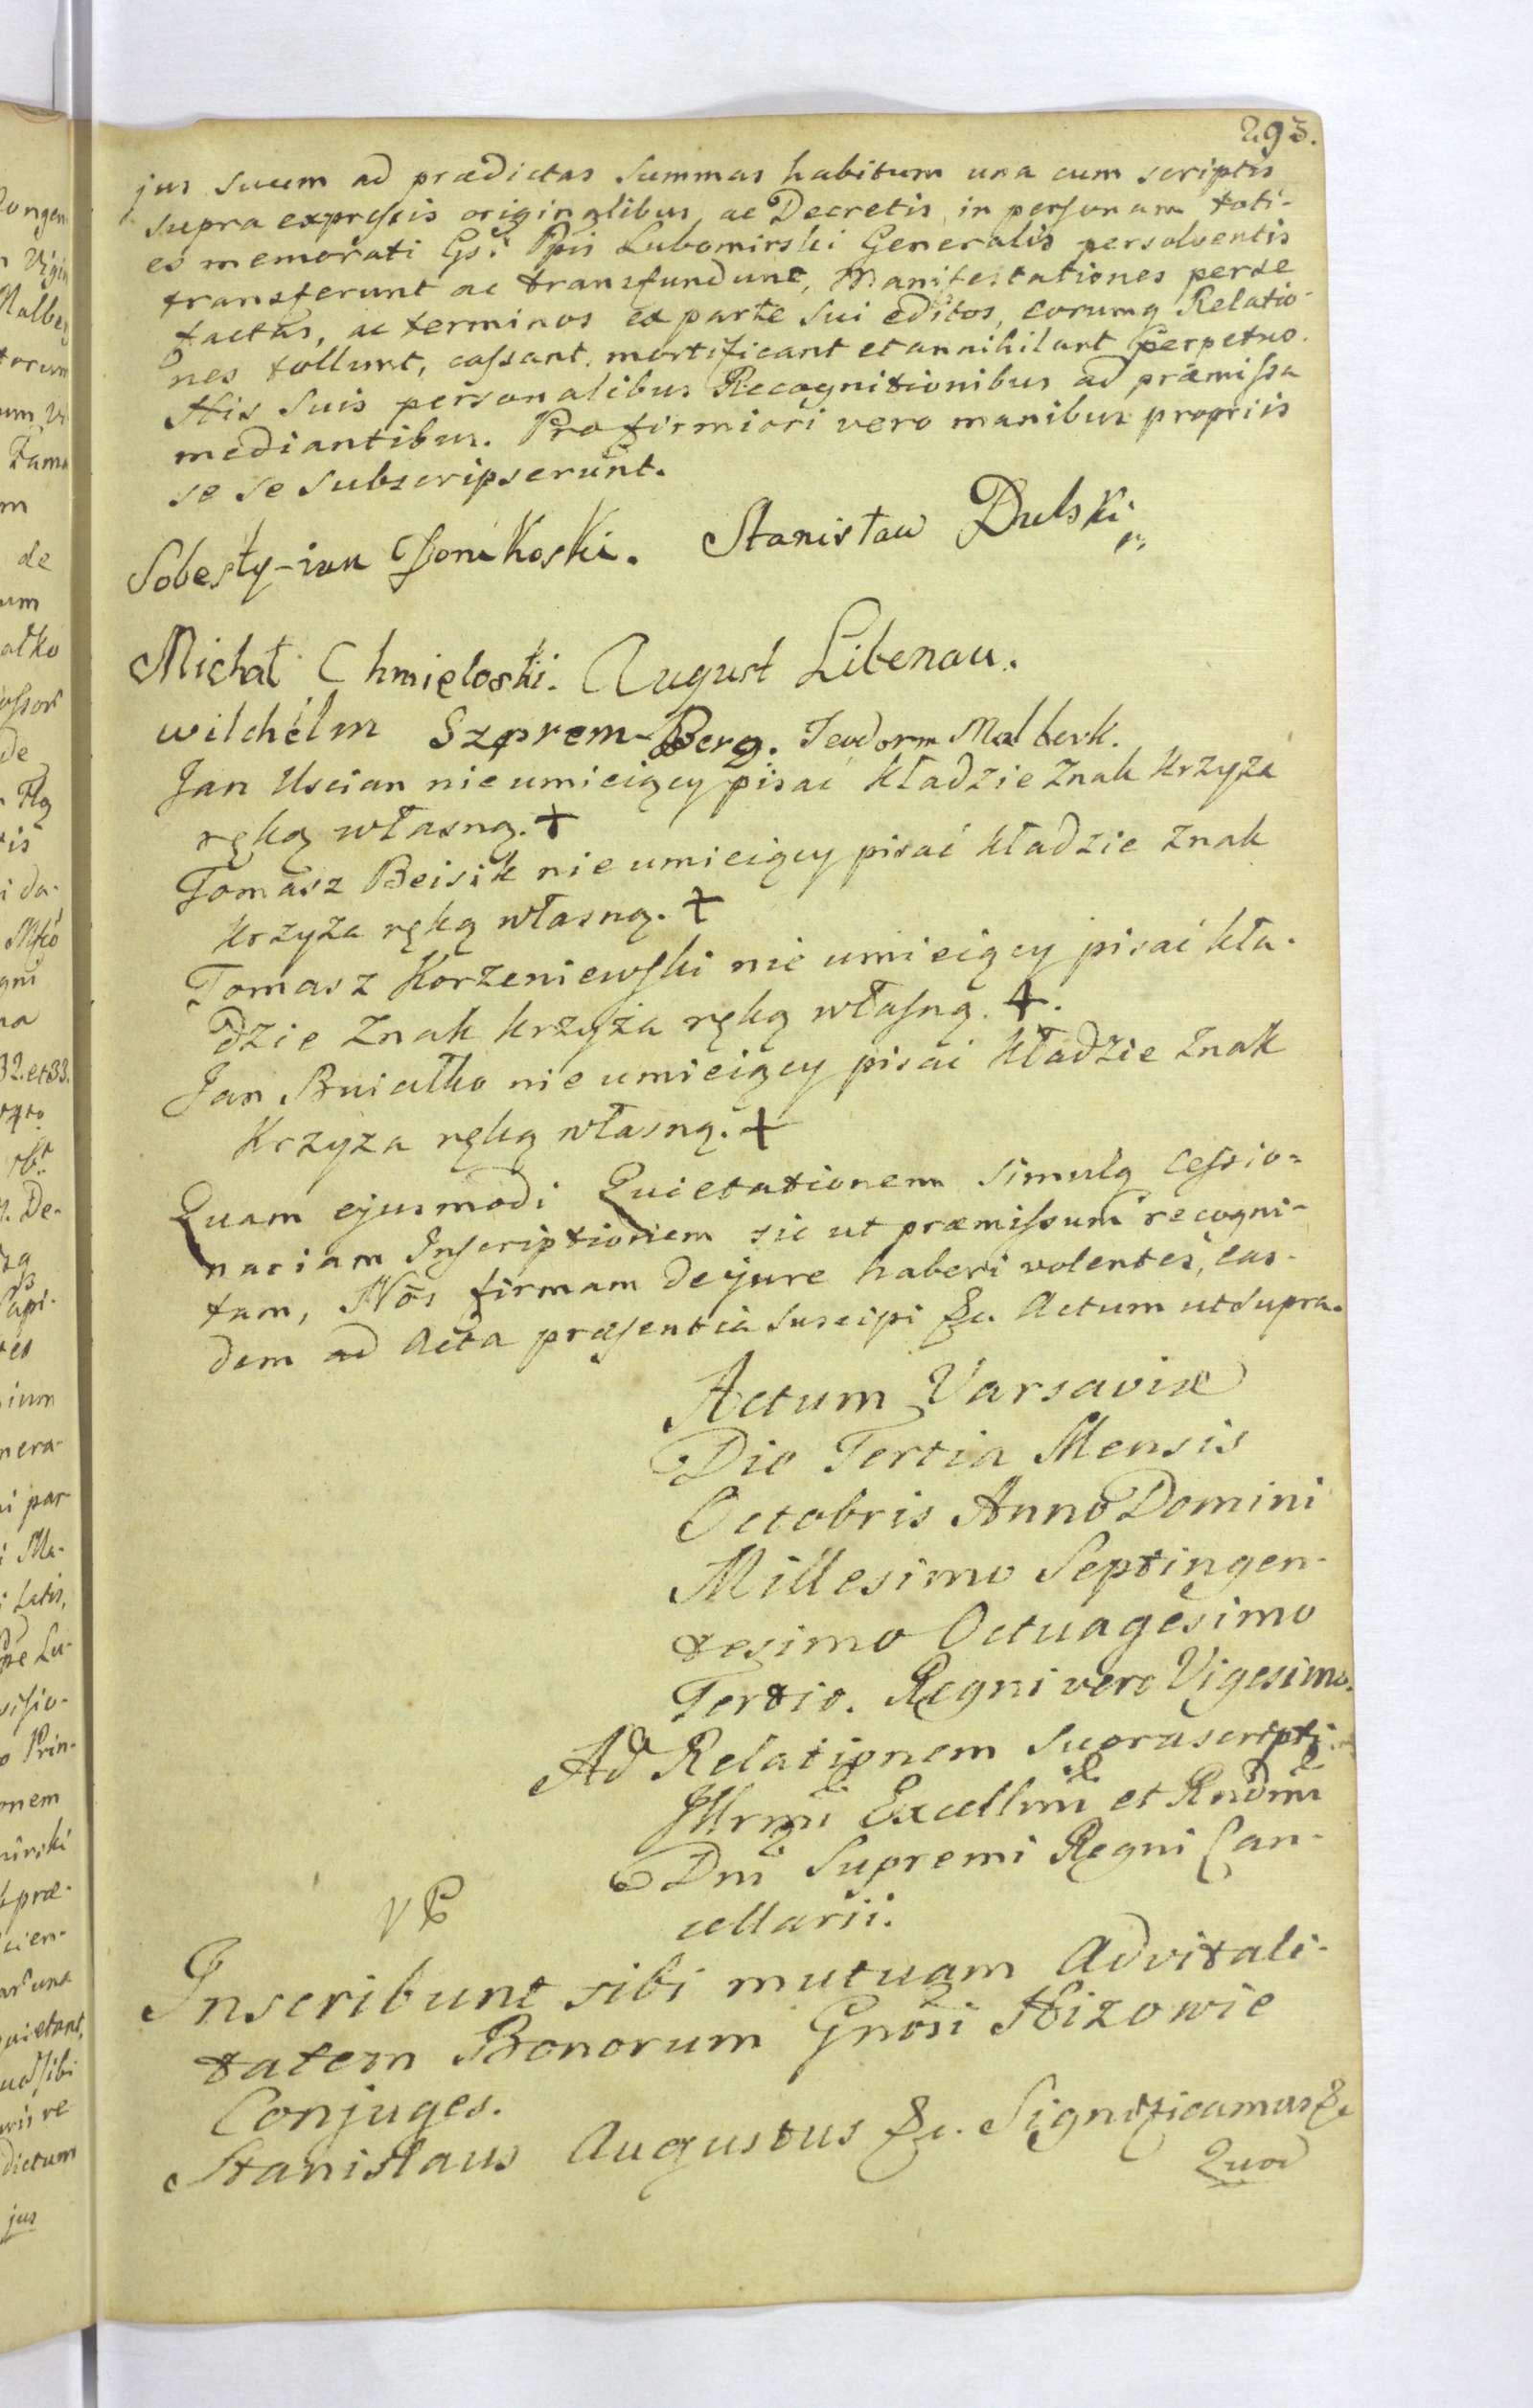 293.
jus suum ad prædictas summas habitum una cum scriptis
supra expressis originalibus, ac Decretis, in personam toti-
es memorati Gsi Ppis Lubomirski Generalis persolventis
transferunt ac transfundunt, Manifestationes per se
factas, ac terminos ex parte sui editos, eorumq Relatio-
nes tollunt, cassant, mortificant et annihilant perpetuo.
His suis personalibus Recognitionibus ad præmissa
mediantibus. Pro firmiori vero manibus propriis
se se subscripserunt.
Stanisław Dulski
Michał Chmieloski. August Libenau.
wilchelm Szprem-Berg. Teodorm Malberk.
Jan Uscian nie umieiący pisać kładzie Znak Krzyża
ręką własną. +
Tomasz Beisik nie umieiący pisać kładzie Znak
Krzyża ręką własną. +
Tomasz Korzeniewski nie umieiący pisać kła-
dzie Znak krzyża ręką własną. +.
Jan Bniałko nie umieiący pisać kładzie Znak
Krzyża ręką własną. +
Quam ejusmodi Quietationem simulq Cessio=
nariam Inscriptionem sic ut præmissum recogni-
tam, Nos firmam de jure haberi volentes, ean-
dem ad Acta præsentia suscipi &c. Actum ut supra.
Actum Varsaviæ
Die Tertia Mensis
Octobris Anno Domini
Millesimo Septingen-
tesimo Octuagesimo
Tertio. Regni vero Vigesimo.
Ad Relationem suprascripti
Illrmi Excellmi et Rndmi
Dni Supremi Regni Can-
cellarii.
Inscribunt sibi mutuam Advitali-
tatem Bonorum Gnosi Hizowie
Conjuges.
Stanislaus Augustus &c. Significamus &c
Quod